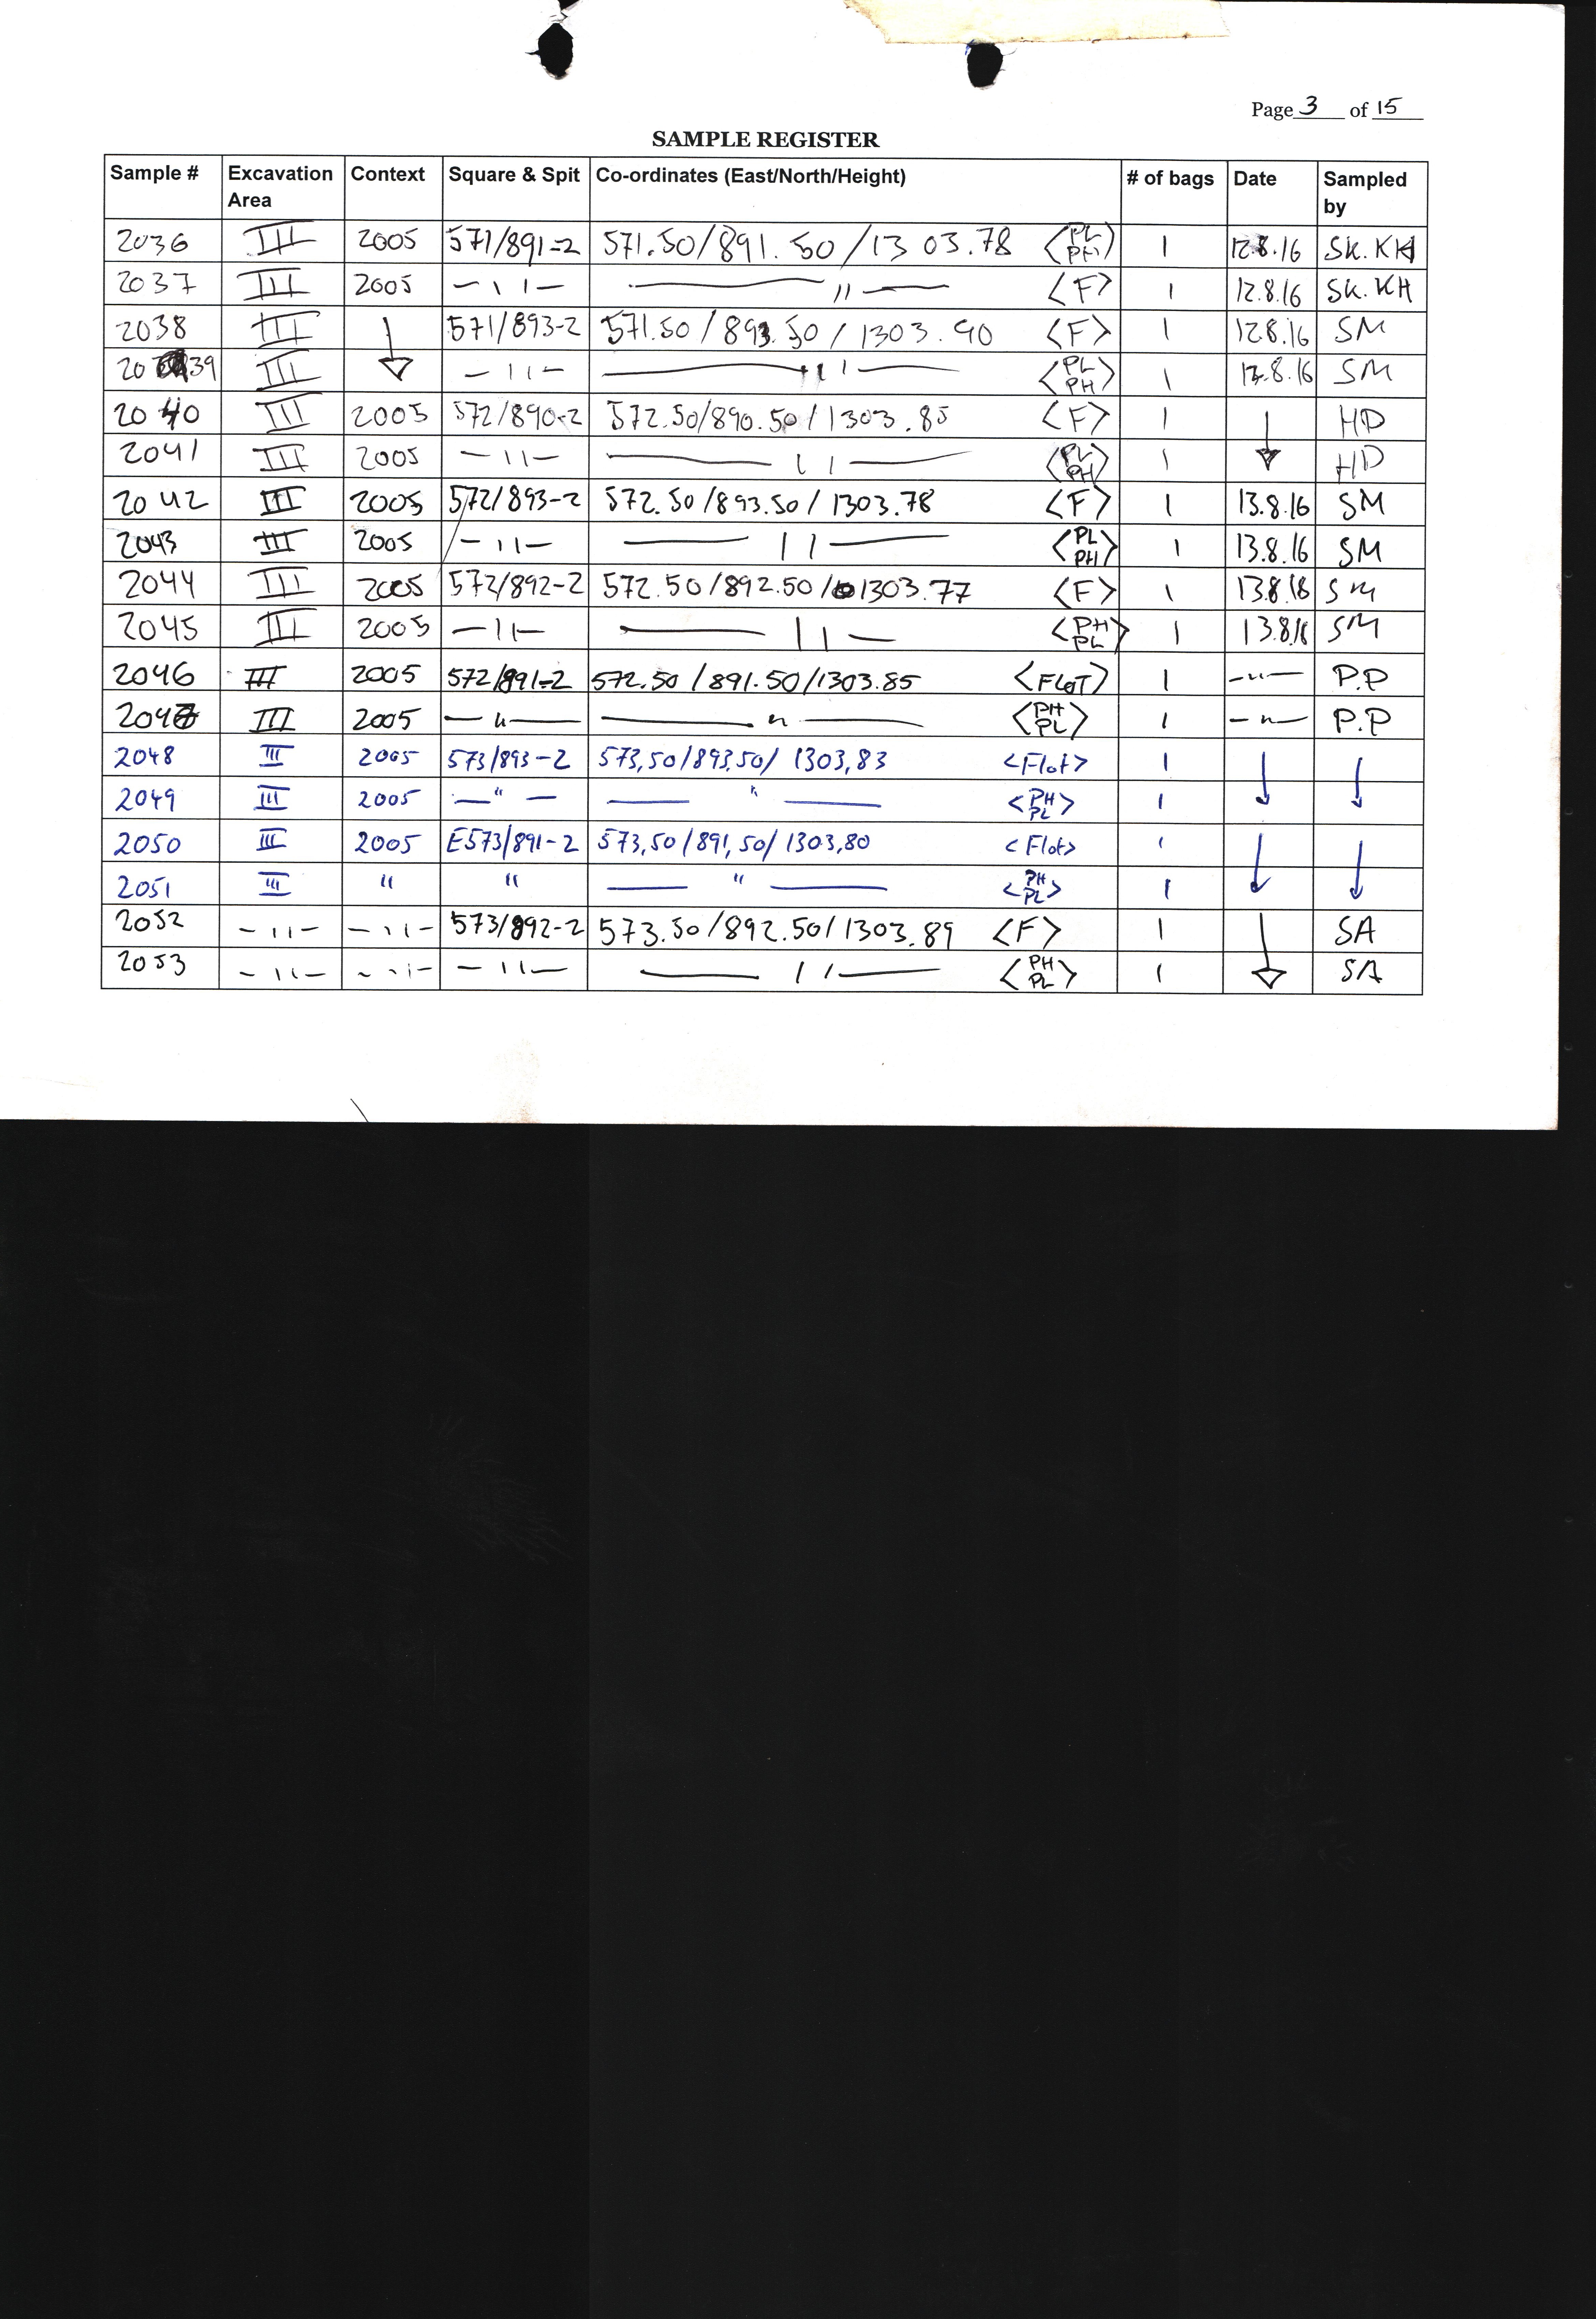 Page 3 of 15
SAMPLE REGISTER
Sample # Excavation Area Context Square & Spit Co-ordinates (East/North/Height) # of bags Date Sampled by
2036 III 2005 571/891-2 571.50/891.50/1303.78 <PL PH> 1 12.8.16 SK.KH
2037 III 2005 — ıı — — ıı — <F> 1 12.8.16 SK.KH
2038 III ↓ 571/893-2 571.50/893.50/1303.90 <F> 1 12.8.16 SM
2039 III — ıı — — ıı — <PL PH> 1 12.8.16 SM
2040 III 2005 572/890-2 572.50/890.50/1303.85 <F> 1 ↓ HD
2041 III 2005 — ıı — — ıı — <PL PH> 1 HD
2042 III 2005 572/893-2 572.50/893.50/1303.78 <F> 1 13.8.16 SM
2043 III 2005 — ıı — — ıı — <PL PH> 1 13.8.16 SM
2044 III 2005 572/892-2 572.50/892.50/1303.77 <F> 1 13.8.16 SM
2045 III 2005 — ıı — — ıı — <PH PL> 1 13.8.16 SM
2046 III 2005 572/891-2 572.50/891.50/1303.85 <FLOT> 1 — ıı — P.P
2047 III 2005 — ıı — — ıı — <PH PL> 1 — ıı — P.P
2048 III 2005 573/893-2 573,50/893,50/1303,83 <Flot> 1 ↓ ↓
2049 III 2005 — " — — " — <PH PL> 1
2050 III 2005 E573/891-2 573,50/891,50/1303,80 <Flot> 1 ↓ ↓
2051 III " " — " — <PH PL> 1
2052 — ıı — — ıı — 573/892-2 573.50/892.50/1303.89 <F> 1 ↓ SA
2053 — ıı — — ıı — — ıı — — ıı — <PH PL> 1 SA